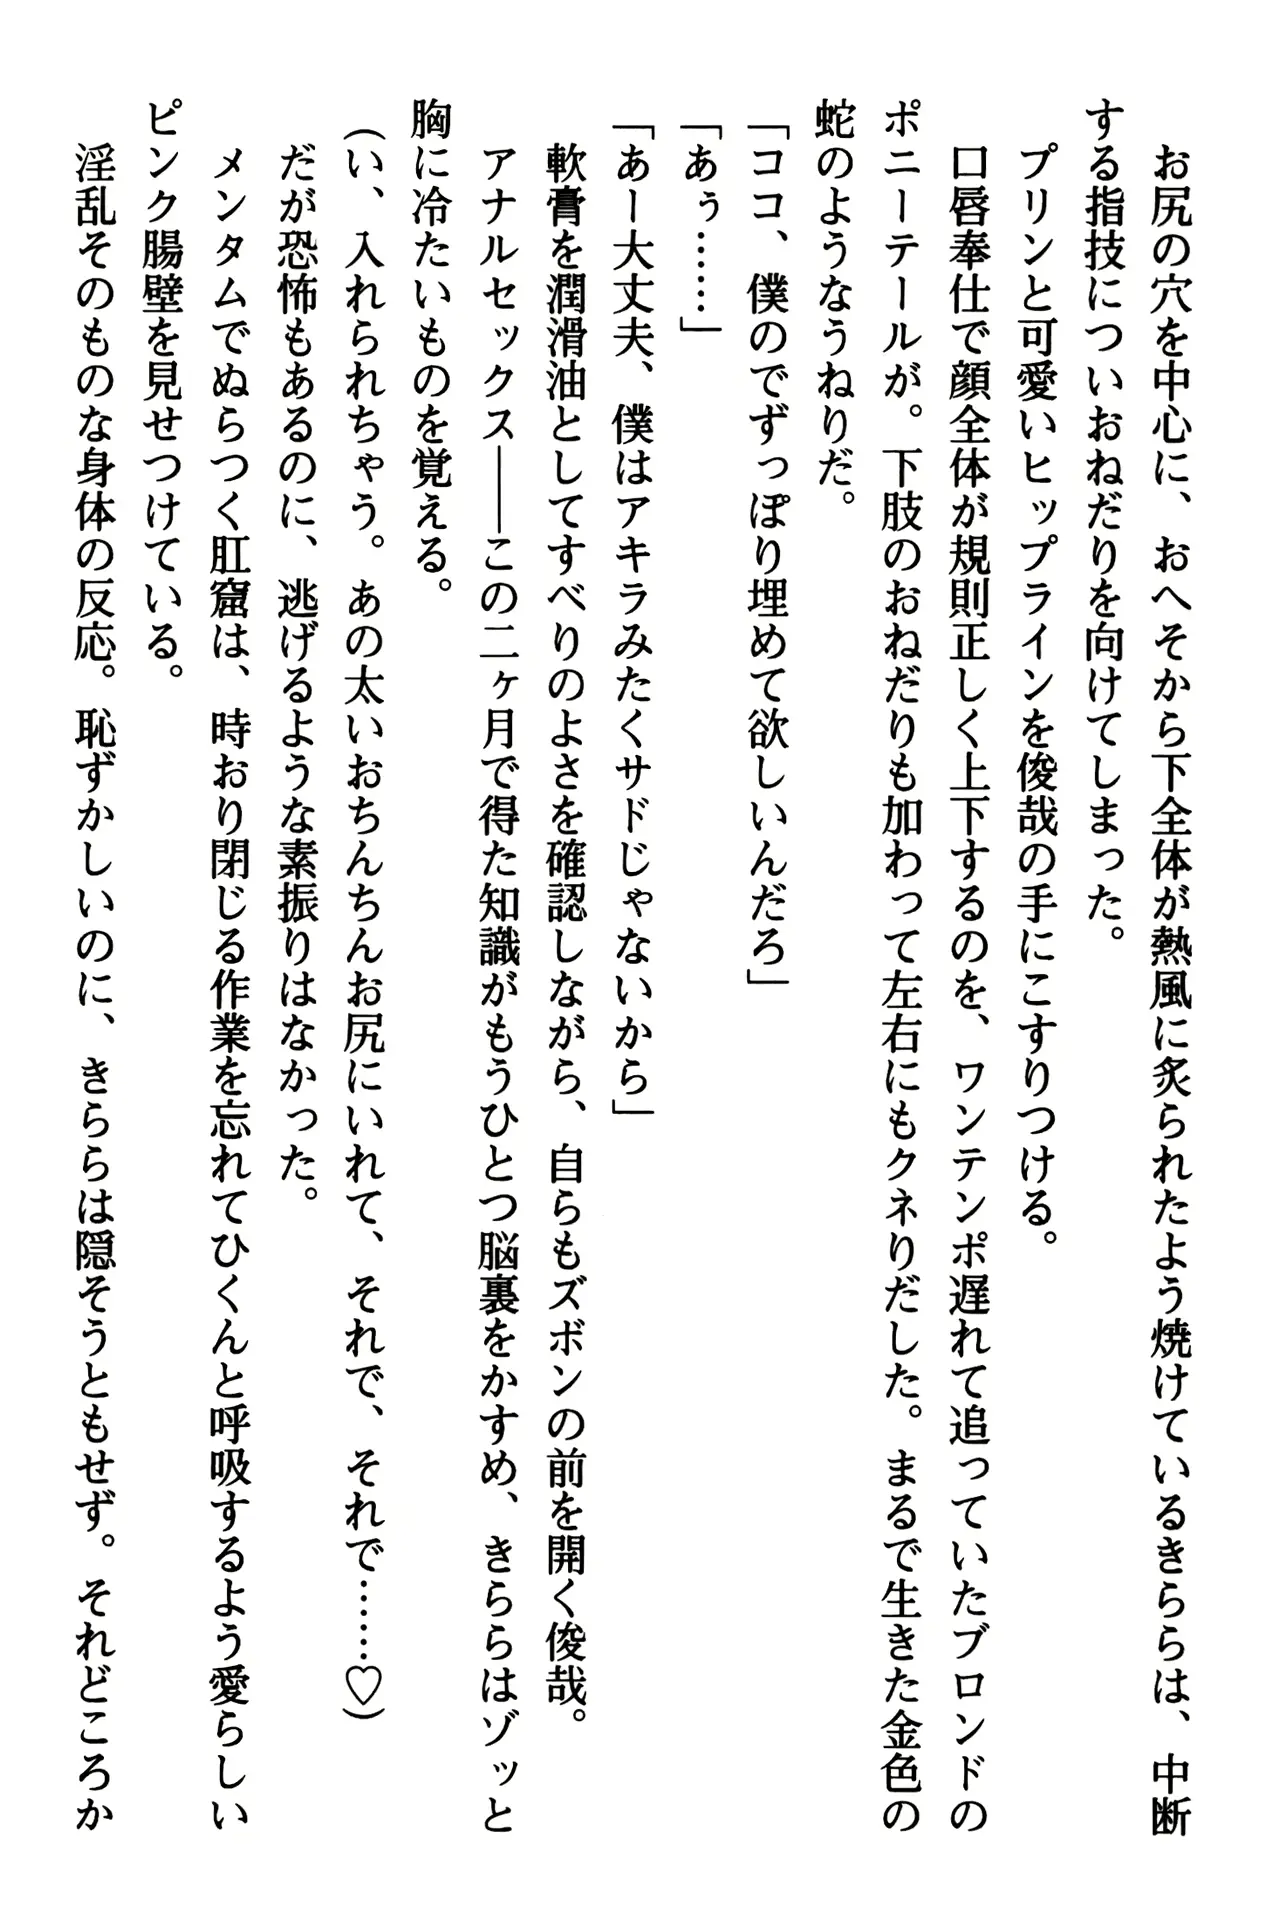 お尻の穴を中心に、おへそから下全体が熱風に炙られたよう焼けているきららは、中断
する指技についおねだりを向けてしまった。
プリンと可愛いヒップラインを俊哉の手にこすりつける。
口唇奉仕で顔全体が規則正しく上下するのを、ワンテンポ遅れて追っていたブロンドの
ポニーテールが。下肢のおねだりも加わって左右にもクネりだした。まるで生きた金色の
蛇のようなうねりだ。
「ココ、僕のでずっぽり埋めて欲しいんだろ」
「あぅ……」
「あー大丈夫、僕はアキラみたくサドじゃないから」
軟膏を潤滑油としてすべりのよさを確認しながら、自らもズボンの前を開く俊哉。
アナルセックス――この二ヶ月で得た知識がもうひとつ脳裏をかすめ、きららはゾッと
胸に冷たいものを覚える。
(い、入れられちゃう。あの太いおちんちんお尻にいれて、それで、それで……♡)
だが恐怖もあるのに、逃げるような素振りはなかった。
メンタムでぬらつく肛窟は、時おり閉じる作業を忘れてひくんと呼吸するよう愛らしい
ピンク腸壁を見せつけている。
淫乱そのものな身体の反応。恥ずかしいのに、きららは隠そうともせず。それどころか